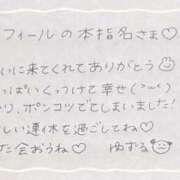 フィールの本指名さま♡
いに来てくれてありがとう
ぱいくっつけて幸せ(>ᴗ<)
り、ポンコツでしまいました!
しい連休を過ごしてね♡
た会おうね ゆずる